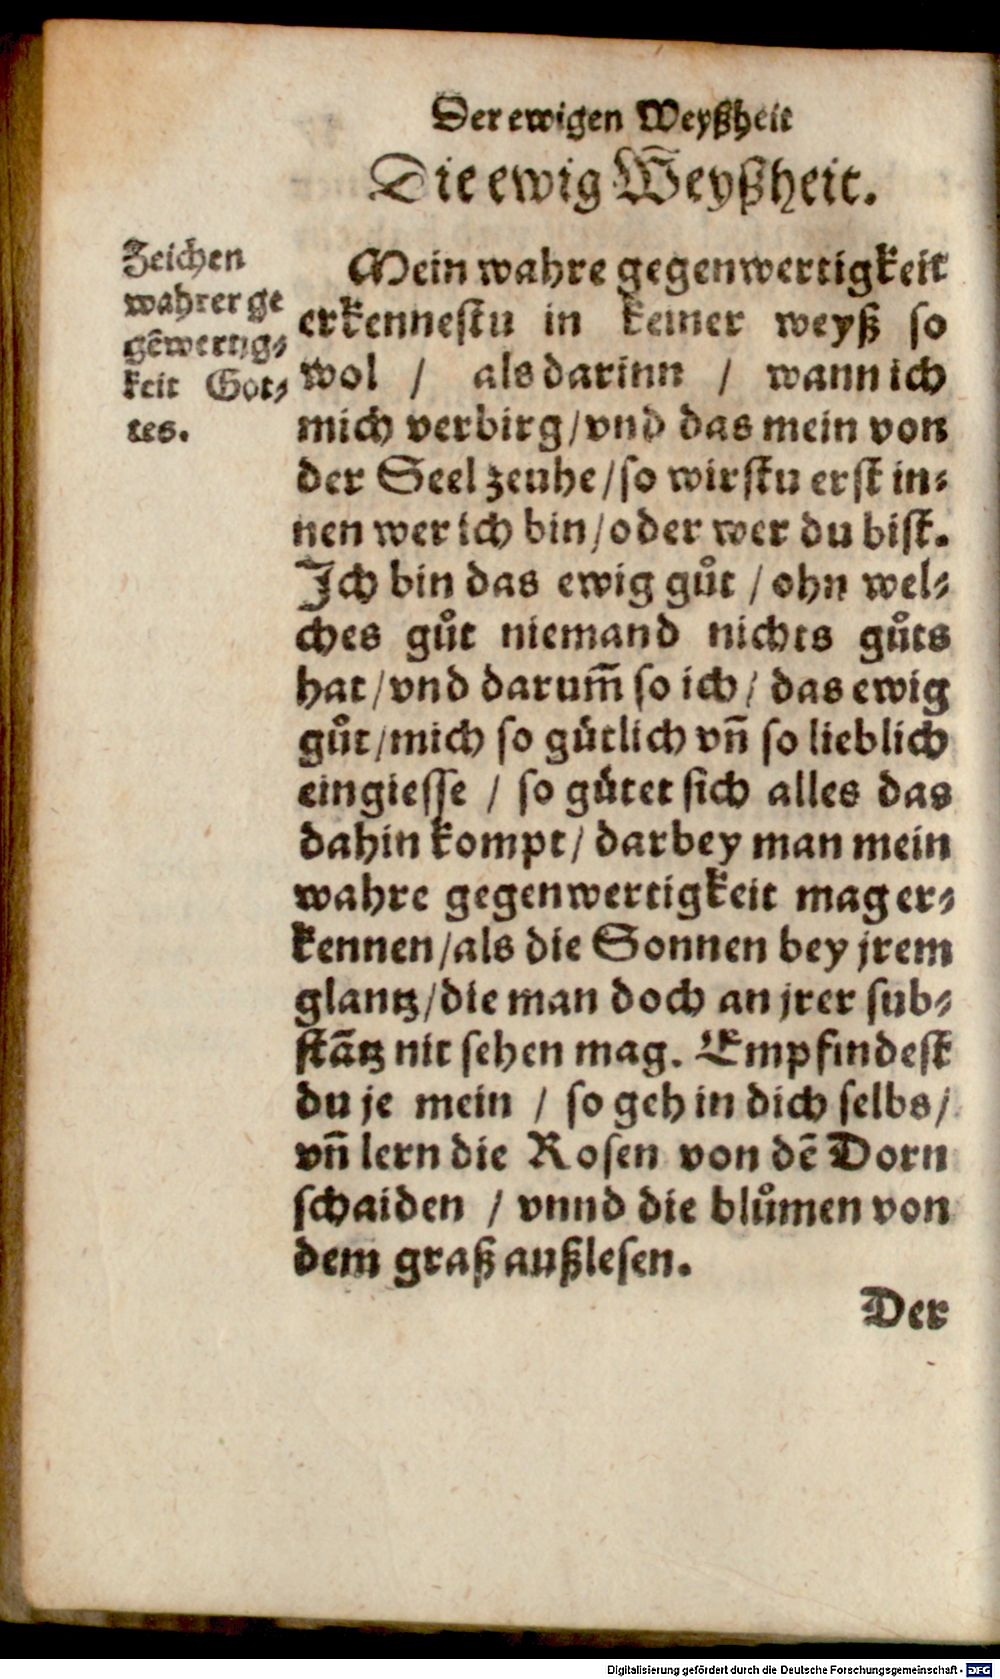 Der ewigen Weyßheit
Die ewig Weyßheit.
Zeichen
wahrer ge
gẽwertig⸗
keit Got⸗
tes.
Mein wahre gegenwertigkeit
erkennestu in keiner weyß so
wol / als darinn / wann ich
mich verbirg / vnd das mein von
der Seel zeuhe / so wirstu erst in⸗
nen wer ich bin / oder wer du bist.
Ich bin das ewig guͦt / ohn wel⸗
ches guͦt niemand nichts guͦts
hat / vnd darum̃ so ich / das ewig
guͦt / mich so guͤtlich vñ so lieblich
eingiesse / so guͤtet sich alles das
dahin kompt / darbey man mein
wahre gegenwertigkeit mag er⸗
kennen / als die Sonnen bey jrem
glantz / die man doch an jrer sub⸗
stãtz nit sehen mag. Empfindest
du je mein / so geh in dich selbs /
vñ lern die Rosen von dẽ Dorn
schaiden / vnnd die bluͦmen von
dem graß außlesen.
Der
Digitalisierung gefördert durch die Deutsche Forschungsgemeinschaft - DFG